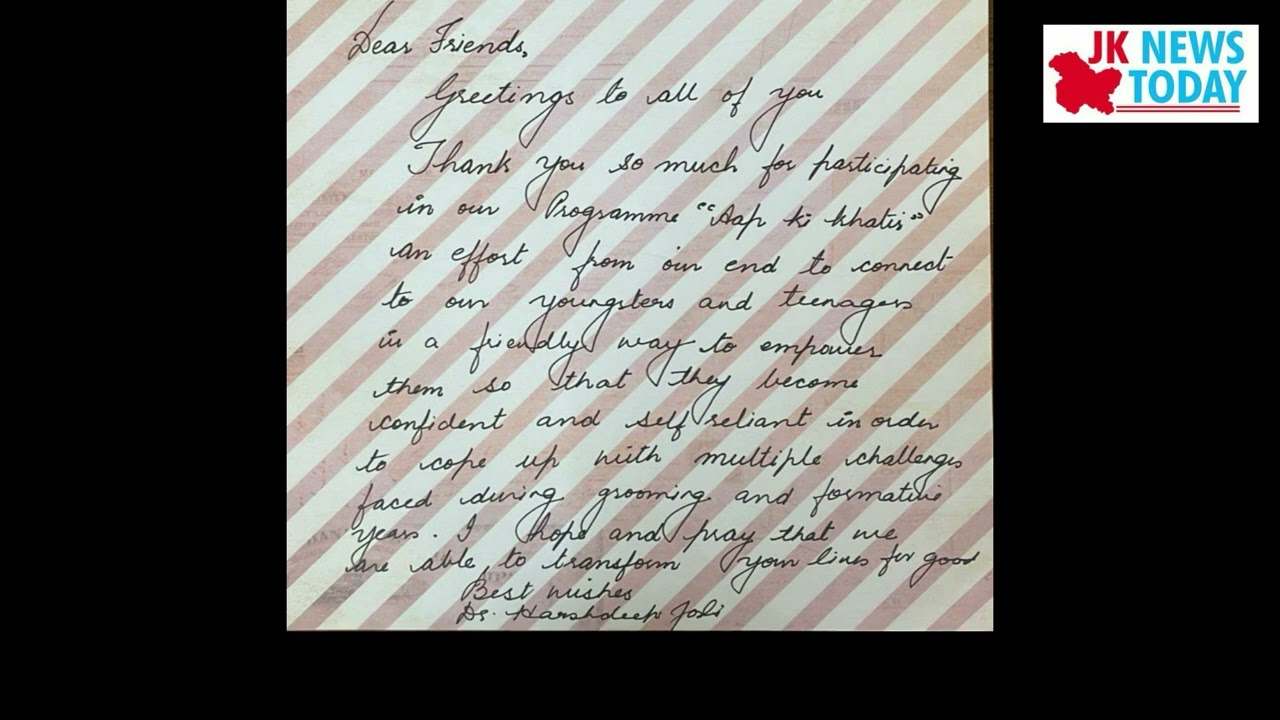 Dear Friends,
Greetings to all of you
Thank you so much for participating
in our Programme "Aap ki khatir"
an effort from our end to connect
to our youngsters and teenagers
in a friendly way to empower
them so that they become
confident and self reliant in order
to cope up with multiple challenges
faced during grooming and formative
years. I hope and pray that we
are able to transform your lives for good
Best wishes
Dr. Harshdeep Joli
JK NEWS
TODAY